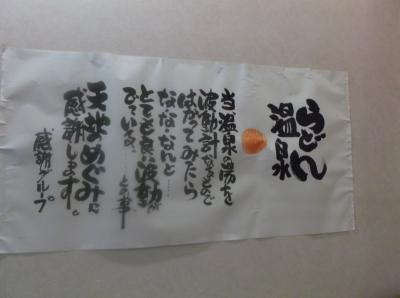 らどん
温泉
当温泉の湯を
波動計なるもので
はかってみたら
なな・なんと……
とても良い波動が
でている……との事
天地のめぐみに
感謝します。
感謝グループ